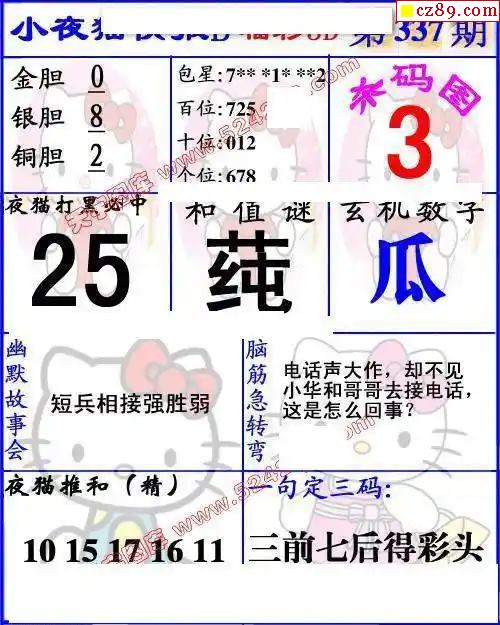 cz89.com
小夜猫快报D 福彩3D 第337期
金胆 0
银胆 8
铜胆 2
包星:7** *1* **2
百位:725
十位:012
个位:678
本码图
3
夜猫打黑必中
25
和值谜
莼
玄机数字
瓜
幽默故事会
短兵相接强胜弱
脑筋急转弯
电话声大作，却不见
小华和哥哥去接电话，
这是怎么回事？
夜猫推和（精）
10 15 17 16 11
一句定三码:
三前七后得彩头